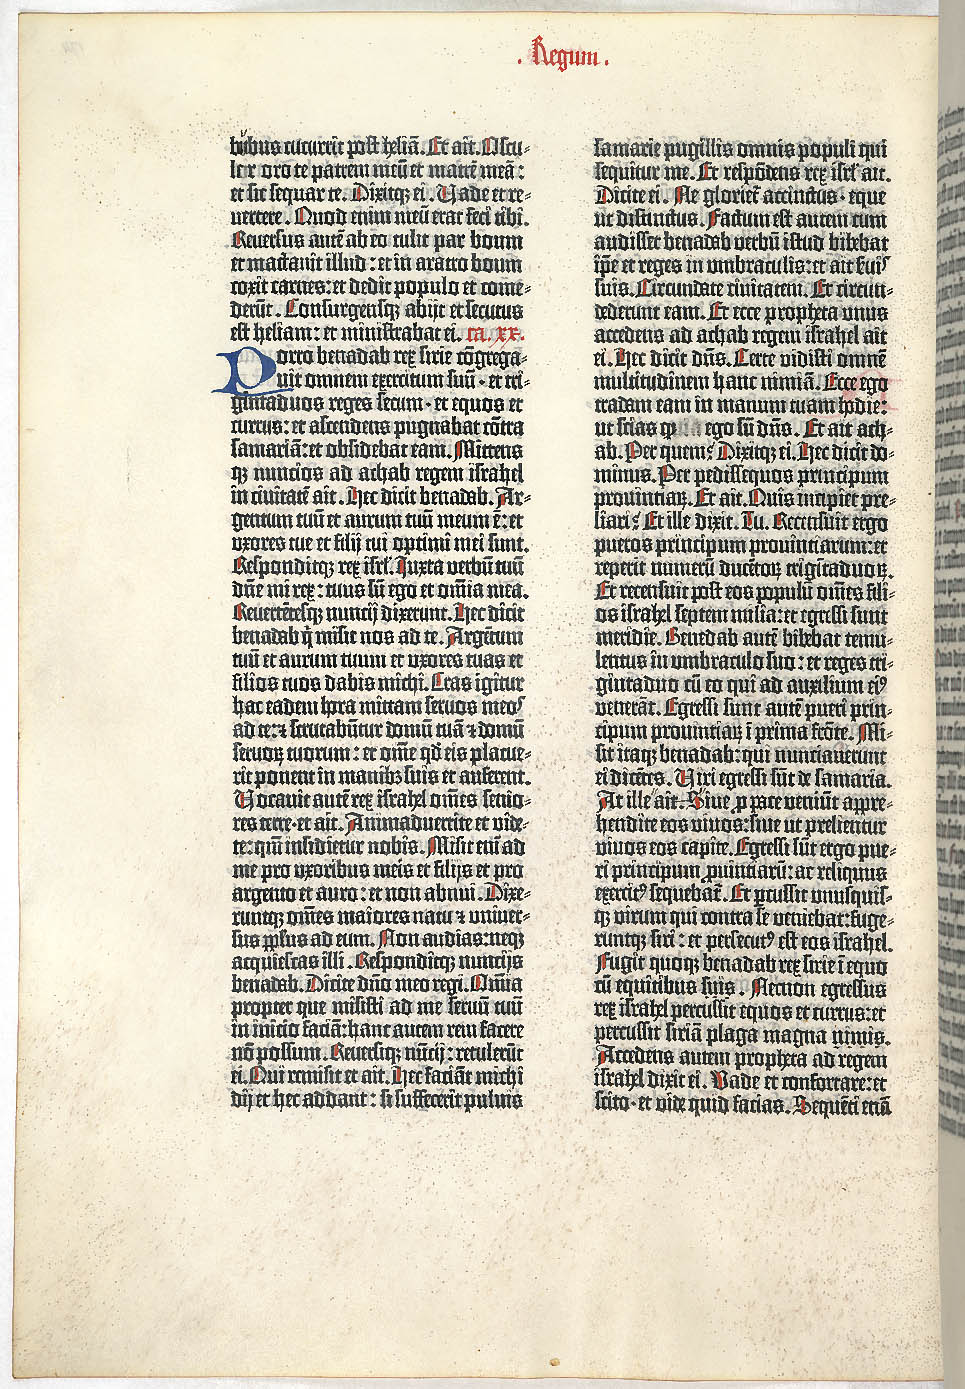 . Regum .
bꝰbus cucurrit post heliā. Et ait. Oscu⸗
ler oro te patrem meū et matrē meā:
et sic sequar te. Dixitqꝫ ei. Vade et re⸗
uertere. Quod enim meū erat feci tibi.
Reuersus autē ab eo tulit par boum
et mactauit illud: et in aratro boum
coxit carnes: et dedit populo et come⸗
derūt. Consurgensqꝫ abijt et secutus
est heliam: et ministrabat ei. ca. xx.
Porro benadab rex sirie cōgrega⸗
uit omnem exercitum suū · et tri⸗
gintaduos reges secum · et equos et
currus: et ascendens pugnabat cōtra
samariā: et obsidebat eam. Mittens
qꝫ nuncios ad achab regem israhel
in ciuitatē ait. Hec dicit benadab. Ar⸗
gentum tuū et aurum tuū meum ē: et
vxores tue et filij tui optimi mei sunt.
Responditqꝫ rex isrl. Iuxta verbū tuū
dn̄e mi rex: tuus sū ego et om̄ia mea.
Reuertētesqꝫ nuncij dixerunt. Hec dicit
benadab q̄ misit nos ad te. Argētum
tuū et aurum tuum et vxores tuas et
filios tuos dabis michi. Cras igitur
hac eadem hora mittam seruos meoˢ
ad te: ⁊ scrutabūtur domū tuā ⁊ domū
seruoꝝ tuorum: et om̄e qd̄ eis placue⸗
rit ponent in manibꝫ suis et auferent.
Vocauit autē rex israhel om̄es senio⸗
res terre · et ait. Animaduertite et vide⸗
te: qm̄ insidietur nobis. Misit em̄ ad
me pro vxoribus meis et filijs et pro
argento et auro: et non abnui. Dixe⸗
runtqꝫ om̄es maiores natu ⁊ vniuer⸗
sus ppl̄us ad eum. Non audias: neqꝫ
acquiescas illi. Responditqꝫ nuncijs
benadab. Dicite dn̄o meo regi. Om̄ia
propter que misisti ad me seruū tuū
in inicio faciā: hanc autem rem facere
nō possum. Reuersiqꝫ nūcij: retulerūt
ei. Qui remisit et ait. Hec faciāt michi
dij et hec addant: si suffecerit puluis
samarie pugillis omnis populi qui
sequitur me. Et respōdens rex isrl̄ ait.
Dicite ei. Ne gloriet᷑ accinctus · eque
ut distinctus. Factum est autem cum
audisset benadab verbū istud bibebat
ip̄e et reges in vmbraculis: et ait suiˢ
suis. Circumdate ciuitatem. Et circun⸗
dederunt eam. Et ecce propheta vnus
accedens ad achab regem israhel ait
ei. Hec dicit dn̄s. Certe vidisti omnē
multitudinem hanc nimiā. Ecce ego
tradam eam in manum tuam hodie:
ut scias qꝫ ego sū dn̄s. Et ait ach⸗
ab. Per quem? Dixitqꝫ ei. Hec dicit do⸗
minus. Per pedissequos principum
prouintiaꝝ. Et ait. Quis incipiet pre⸗
liari? Et ille dixit. Tu. Recensuit ergo
pueros principum prouintiarum: et
reperit numerū ducētoꝝ trigitaduoꝝ.
Et recensuit post eos populū om̄es fili⸗
os israhel septem milia: et egressi sunt
meridie. Benedab autē bibebat temu⸗
lentus in vmbraculo suo: et reges tri⸗
gintaduo cū eo qui ad auxilium eiꝰ
venerāt. Egressi sunt autē pueri prin⸗
cipum prouintiaꝝ ī prima frōte. Mi⸗
sit itaqꝫ benadab: qui nunciauerunt
ei dicētes. Viri egressi sūt de samaria.
At ille ait. Siue ꝓ pace veniūt appre⸗
hendite eos viuos: siue ut prelientur
viuos eos capite. Egressi sūt ergo pue⸗
ri principum ꝓuintiarū: ac reliquus
exercitꝰ sequebat᷑. Et ꝑcussit vnusquis⸗
qꝫ virum qui contra se veniebat: fuge⸗
runtqꝫ siri: et persecutꝰ est eos israhel.
Fugit quoqꝫ benadab rex sirie ī equo
cū equitibus suis. Necnon egressus
rex israhel percussit equos et currus: et
percussit siriā plaga magna nimis.
Accedens autem propheta ad regem
israhel dixit ei. Vade et confortare: et
scito · et vide quid facias. Sequēti em̄